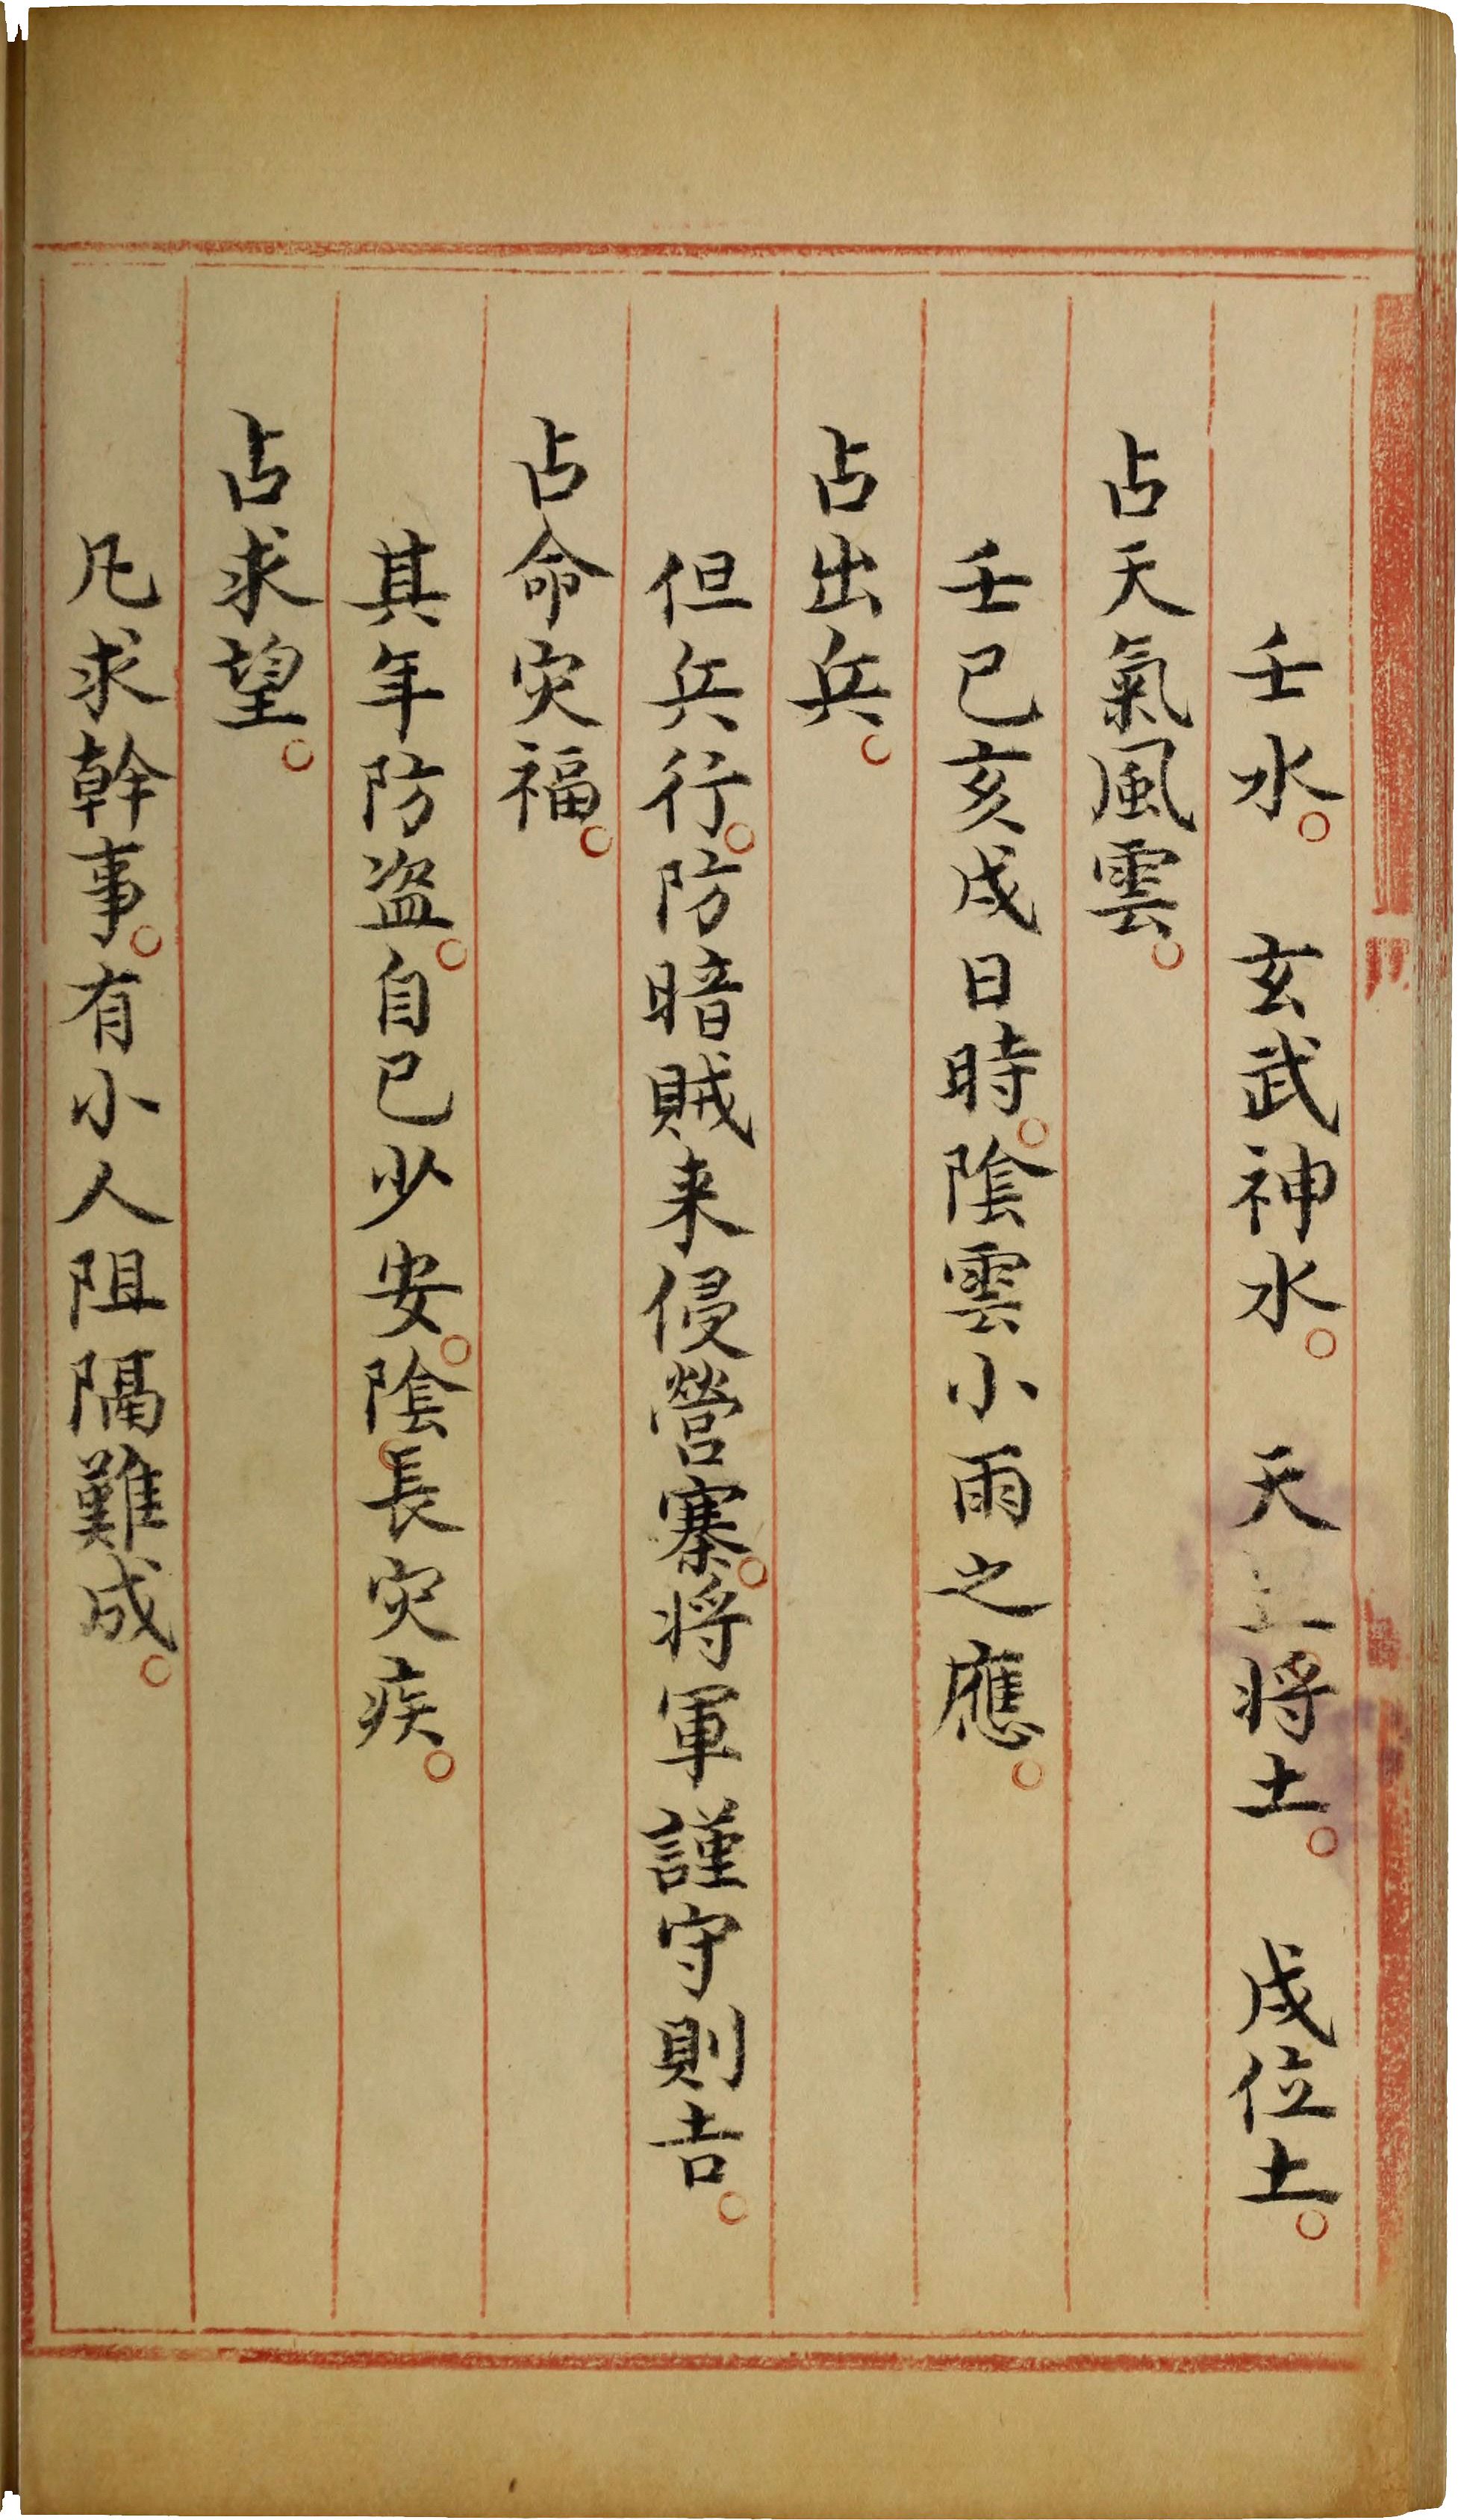 壬水。玄武神水。天將土。戌位土。
占天氣風雲。
壬己亥戌日時。陰雲小雨之應。
占出兵。
但兵行。防暗賊来侵營寨。將軍謹守則吉。
占命灾福。
其年防盗。自己少安。陰長灾疾。
占求望。
凡求幹事。有小人阻隔難成。